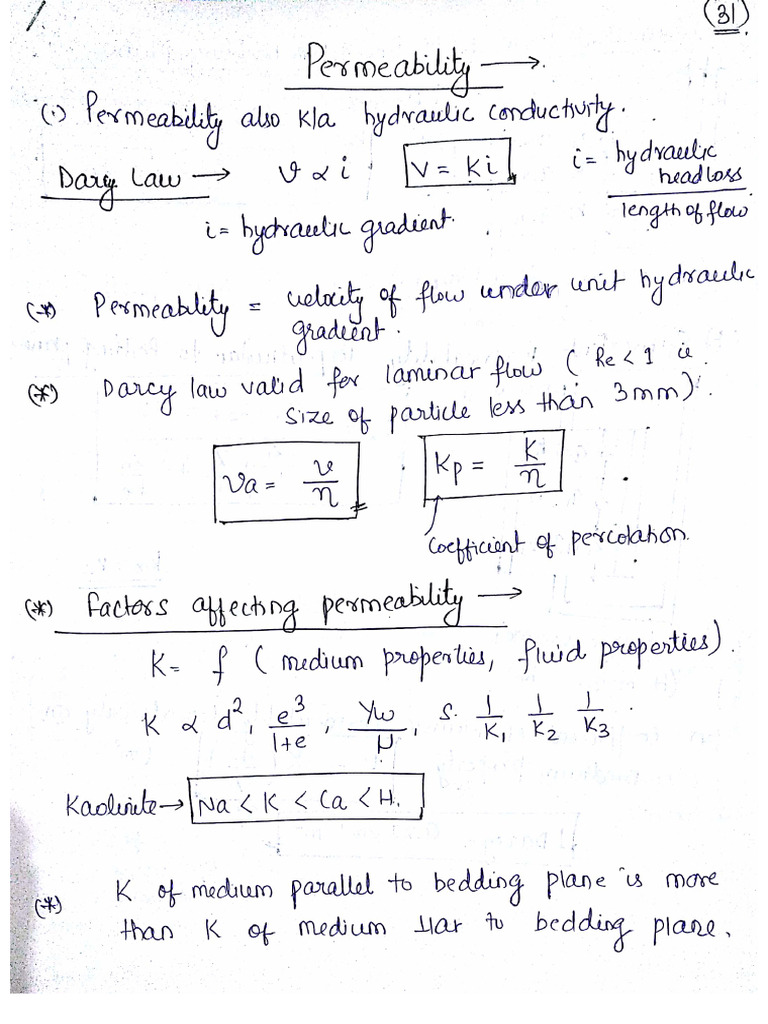 31
Permeability →
(i) Permeability also k/a hydraulic conductivity.
Darcy Law → v ∝ i V = Ki i = hydraulic head loss / length of flow
i = hydraulic gradient.
(*) Permeability = velocity of flow under unit hydraulic
gradient.
(*) Darcy law valid for laminar flow (Re < 1 ie
size of particle less than 3mm).
Va = v/n Kp = K/n
coefficient of percolation.
(*) Factors affecting permeability →
K = f (medium properties, fluid properties).
K ∝ d², e³/1+e, γw/μ, S. 1/K₁ 1/K₂ 1/K₃
Kaolinite → Na < K < Ca < H.
(*) K of medium parallel to bedding plane is more
than K of medium ⊥lar to bedding plane.